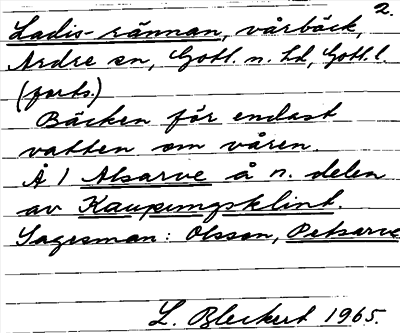 2.
Ladis-rännan, vårbäck,
Ardre sn, Gotl. n. hd, Gotl. l.
(forts.)
Bäcken för endast
vatten om våren.
Å / Alsarve å n. delen
av Kaupungsklint.
Sagesman: Olsson, Petsarve
L. Bleckert 1965.